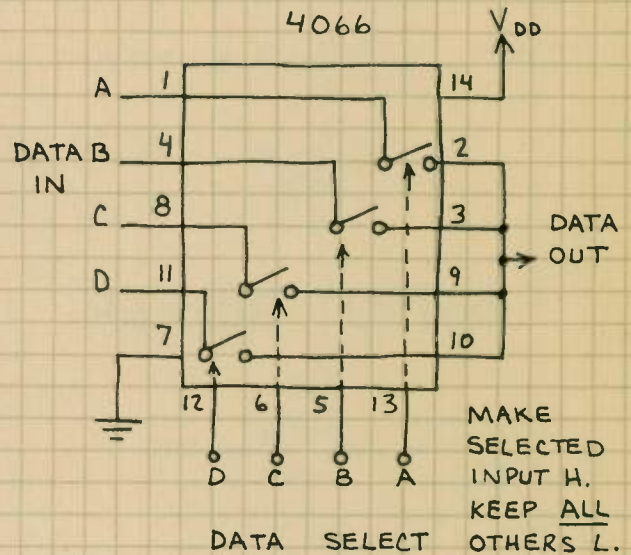 4066
V DD
A 1 14
DATA B 4 2
IN
C 8 3 DATA
OUT
D 11 9
7 10
12 6 5 13
D C B A
DATA SELECT
MAKE
SELECTED
INPUT H.
KEEP ALL
OTHERS L.